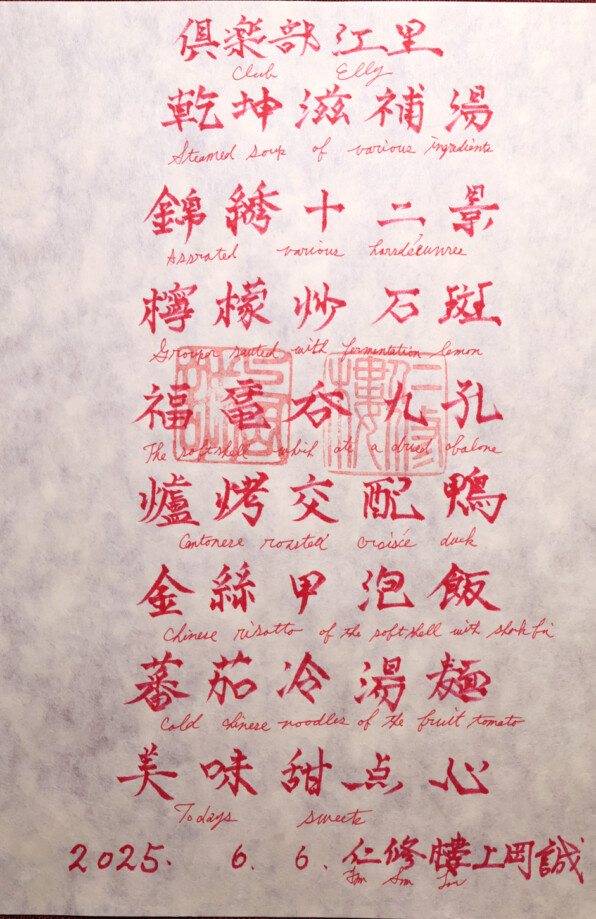 倶楽部 江里
Club Elly
乾坤滋補湯
Steamed soup of various ingredients
錦綉十二景
Assrated various horsdéeunres
檸檬炒石斑
Grouper sauted with fermentation lemon
福 吞九孔
The softshell which ate a dried abalone
爐烤交配鴨
Cantonese roasted croisée duck
金絲甲泡飯
Chinese risotto of the softshell with shark fin
蕃茄冷湯麺
Cold chinese noodles of the fruit tomato
美味甜点心
Todays sweets
2025. 6. 6. 仁修樓上岡誠
仁修樓